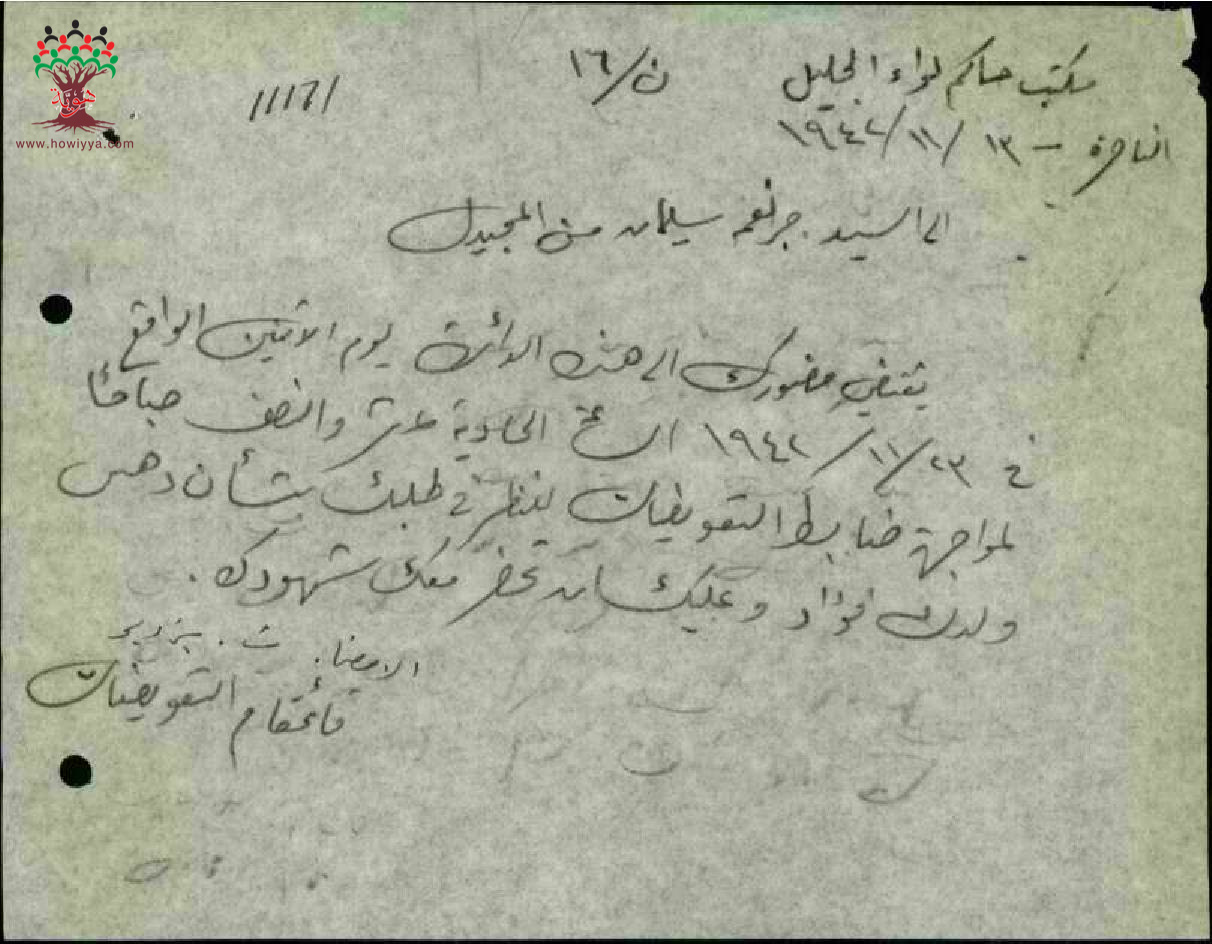 هوية
www.howiyya.com
مكتب حاكم لواء الجليل ن/١٦
11161
الناصرة – ١٣/١١/١٩٤٢
الى السيد سليمان من المجيدل
يقتضي حضورك الى هذه الدائرة يوم الاثنين الواقع
في ٢٣/١١/١٩٤٢ الساعة الحادية عشر والنصف صباحًا
لمواجهة ضابط التعويضات لينظر في طلبك بشأن دهس
ولدك فؤاد وعليك ان تحضر معك شهودك.
الامضاء. ت.
قائمقام التعويضات